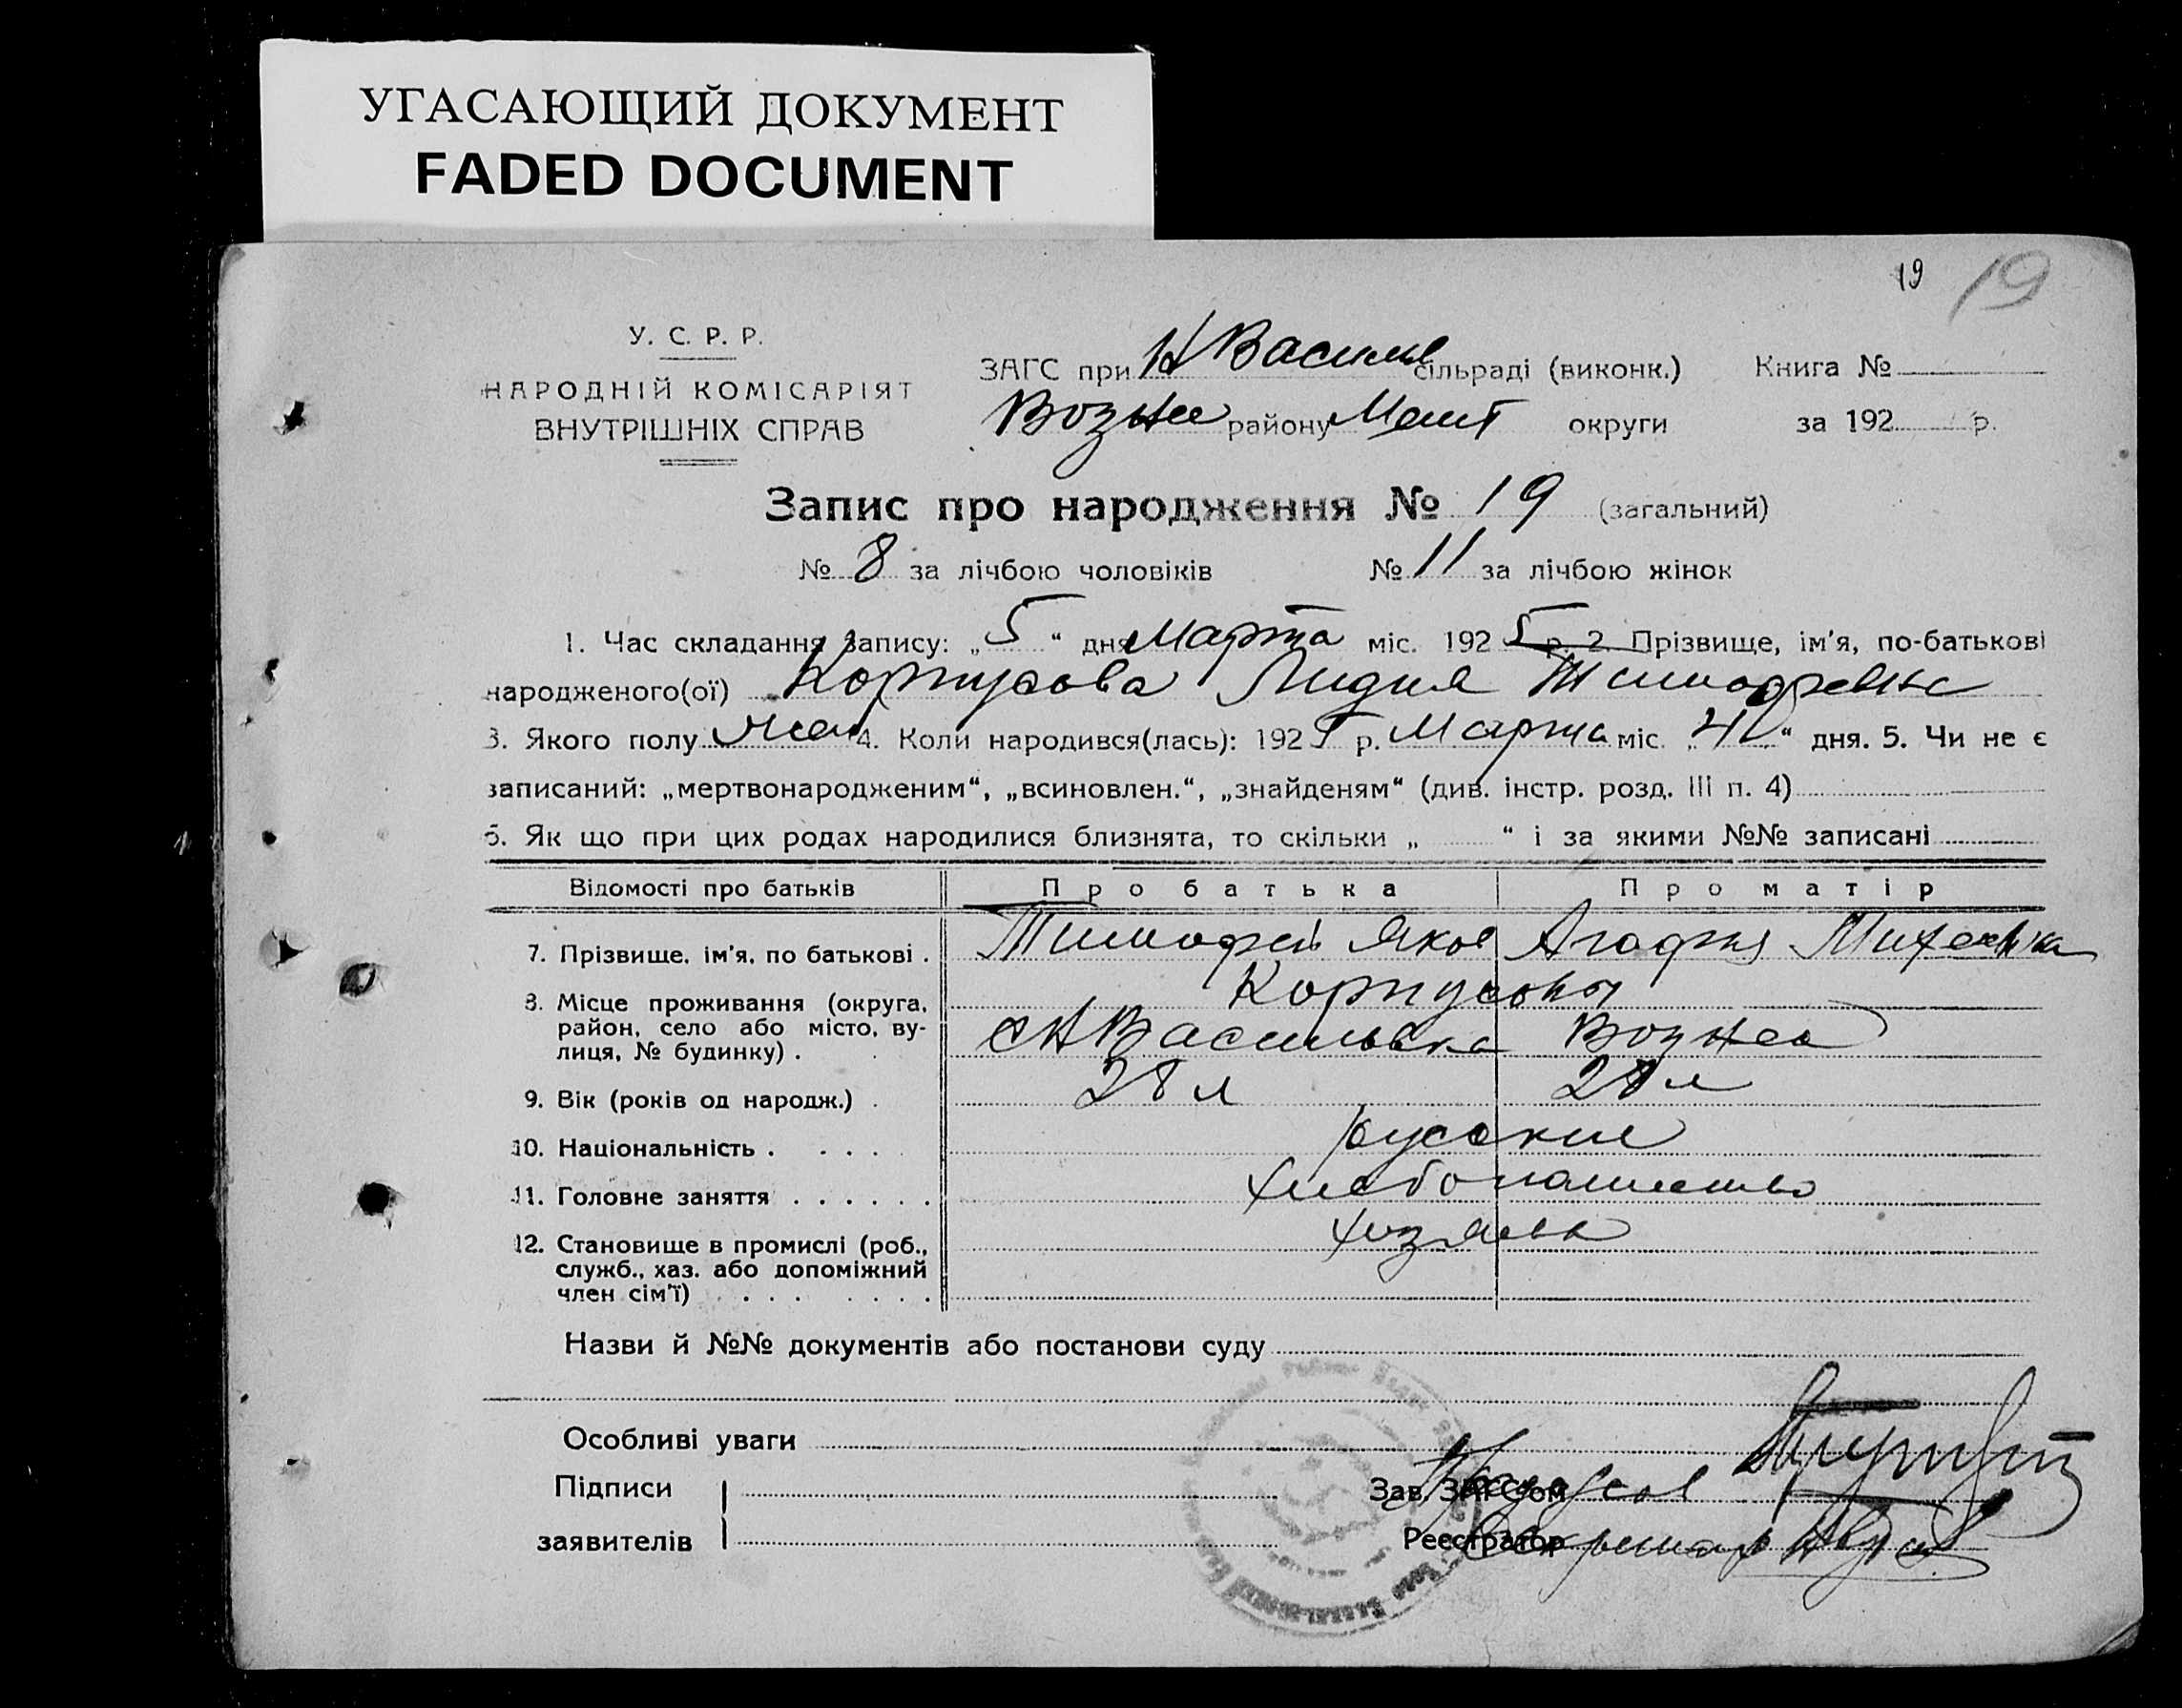 УГАСАЮЩИЙ ДОКУМЕНТ
FADED DOCUMENT
19 19
У. С. Р. Р.
НАРОДНІЙ КОМІСАРІЯТ
ВНУТРІШНІХ СПРАВ
ЗАГС при Н Василь сільраді (виконк.) Книга №
Возне району округи за 192 р.
Запис про народження № 19 (загальний)
№ 8 за лічбою чоловіків № 11 за лічбою жінок
1. Час складання запису: „5“ дня Марта міс. 1925 р. 2. Прізвище, ім'я, по-батькові
народженого(ої) Корпусова Лидия Тимофеевна
3. Якого полу жен 4. Коли народився(лась): 1925 р. Марта міс. „4“ дня. 5. Чи не є
записаний: „мертвонародженим“, „всиновлен.“, „знайденям“ (див. інстр. розд. III п. 4)
6. Як що при цих родах народилися близнята, то скільки „ “ і за якими №№ записані
Відомості про батьків Про батька Про матір
7. Прізвище, ім'я, по батькові . Тимофей Яков Агафия
Корпусовы
8. Місце проживання (округа, район, село або місто, ву-
лиця, № будинку) . с Н Васильевка Возне
9. Вік (років од народж.) . 28 л 28 л
10. Національність . . . . . русские
11. Головне заняття . . . . . . хлебопашество
12. Становище в промислі (роб., хозяева
служб., хаз. або допоміжний
член сім'ї) . . . . . . .
Назви й №№ документів або постанови суду
Особливі уваги
Підписи
заявителів
Зав. ЗАГС'ом
Реестратор Секретарь